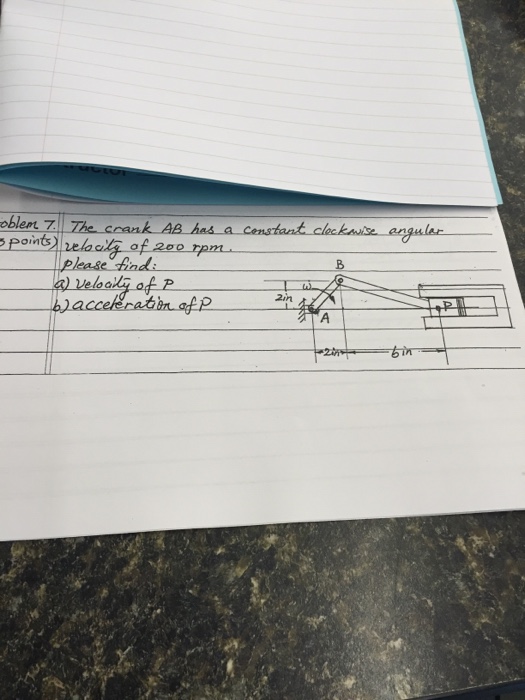 oblem 7. The crank AB has a constant clockwise angular
points) velocity of 200 rpm.
please find:
a) velocity of P
b) acceleration of P
B
ω
2in
A
P
2in
6in